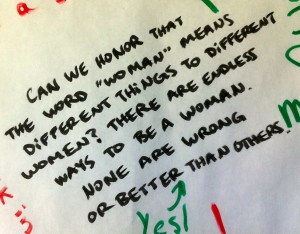 CAN WE HONOR THAT
THE WORD "WOMAN" MEANS
DIFFERENT THINGS TO DIFFERENT
WOMEN? THERE ARE ENDLESS
WAYS TO BE A WOMAN.
NONE ARE WRONG
OR BETTER THAN OTHERS.
Yes!